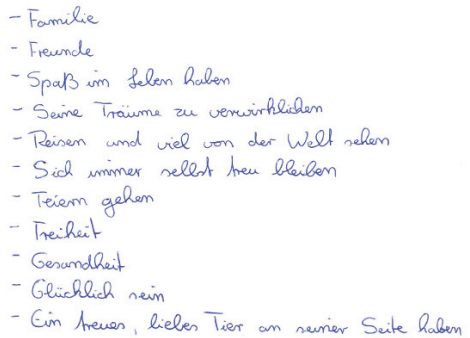 - Familie
- Freunde
- Spaß im Leben haben
- Seine Träume zu verwirklichen
- Reisen und viel von der Welt sehen
- Sich immer selbst treu bleiben
- Feiern gehen
- Freiheit
- Gesundheit
- Glücklich sein
- Ein treues, liebes Tier an seiner Seite haben